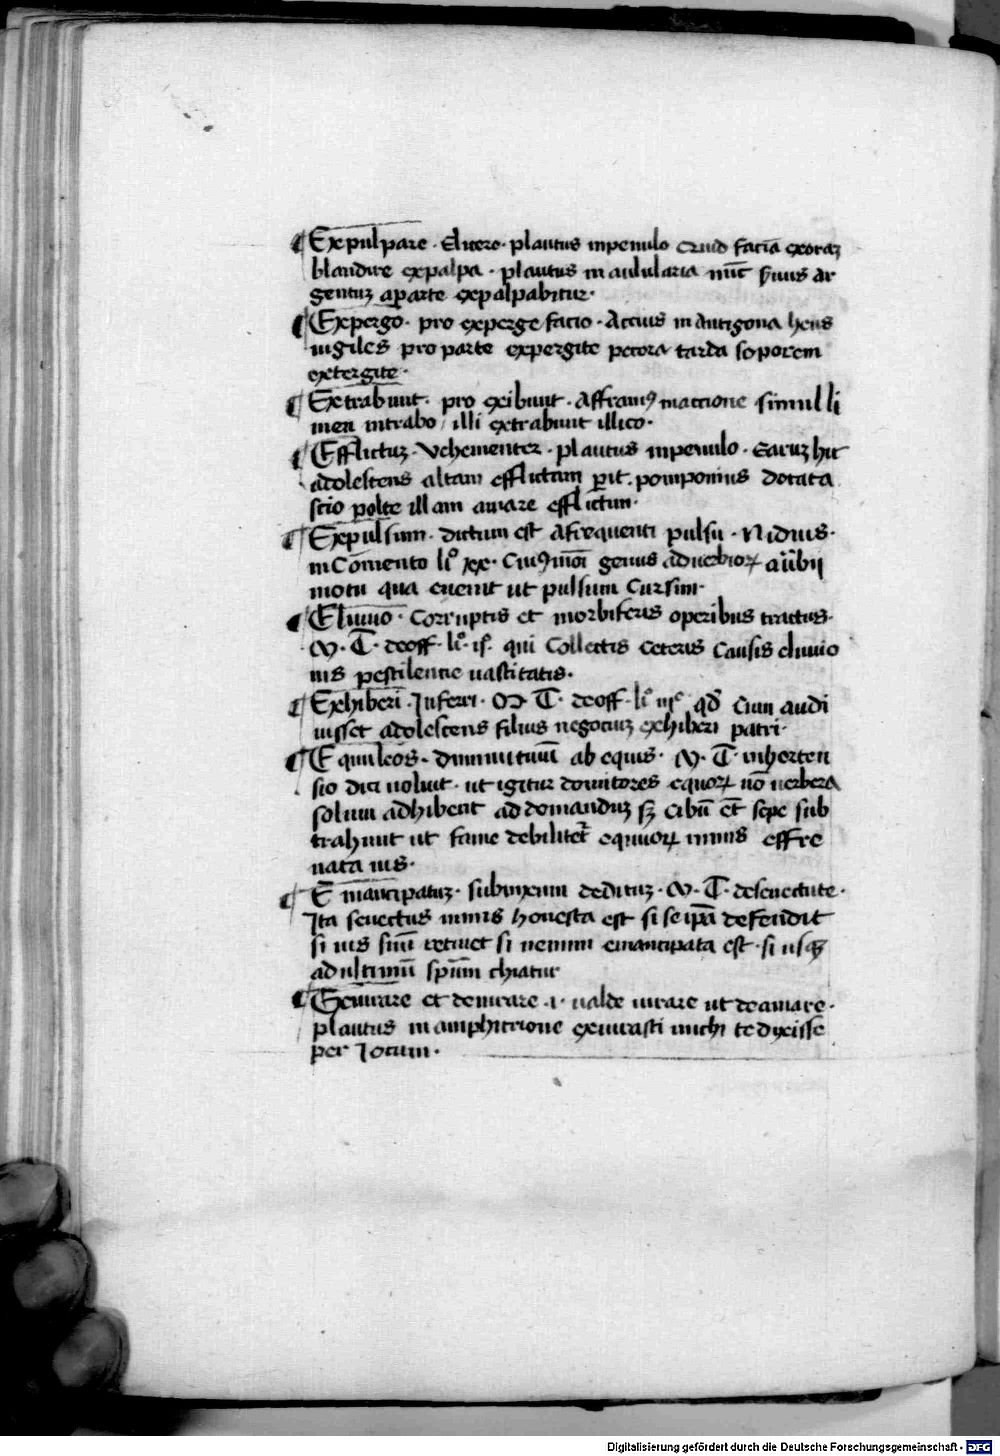 ¶ Expulpare · Elicere · plautus inpenulo Quid faciā exoraꝫ
blandire expalpa · plautus in aulularia nūc prius ar
gentuꝫ aparte expalpabitur ·
¶ Expergo · pro expergefacio · Accius in Antigona heus
uigiles properte expergite pectora tarda soporem
extergite ·
¶ Extrabunt · pro exibunt · Affranius inaccione simul li
men intrabo / illi extrabunt illico ·
¶ Efflictuꝫ · Vehementer · plautus inpenulo · Earuꝫ hic
adolescens altam efflictam perit · pomponius dotata
scio polte illam amare efflictim ·
¶ Expulsim · dictum est afrequenti pulsu · Nidius ·
in Comento lio xx · Cuiusmōi genus aduerbioꝝ
motu qua euenit ut pulsum Cursim ·
¶ Eluuio · Corruptis et morbiferis operibus tractus ·
M · T · deoff · lio · ijo · qui Collectis ceteris Causis eluuio
nis pestilentie uastitatis ·
¶ Exhiberi · Inferri · M T · deoff · lio iijo qd Cum audi
uisset adolescens filius negociuꝫ exhiberi patri ·
¶ Equuleos · diminutiuū ab equis · M · T · inhorten
sio dici uoluit · ut igitur domitores equoꝝ nō uerbera
solum adhibent ad domanduꝫ sꝫ cibū et sepe sub
trahunt ut fame debilitet equuoꝝ nimis effre
nata uis ·
¶ Emancipatuꝫ · subinxum dedituꝫ · M · T · desenectute ·
Ita senectus nimis honesta est si se ipā defendit
si ius suū retinet si nemini emancipata est · si usqꝫ
ad ultimū spūm chiatur
¶ Eiuirare et deiurare · i · ualde iurare ut deamare ·
plautus in amphitrione exiurasti michi te dixisse
per Iocum ·
Digitalisierung gefördert durch die Deutsche Forschungsgemeinschaft - DFG